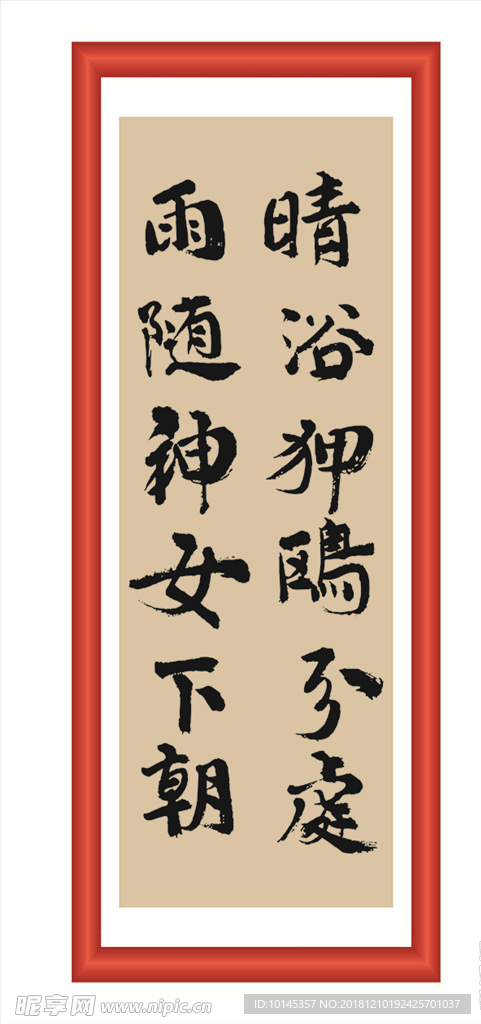 晴浴狎鷗分處
雨随神女下朝
昵享网 www.nipic.cn
ID:10145357 NO:20181210192425701037